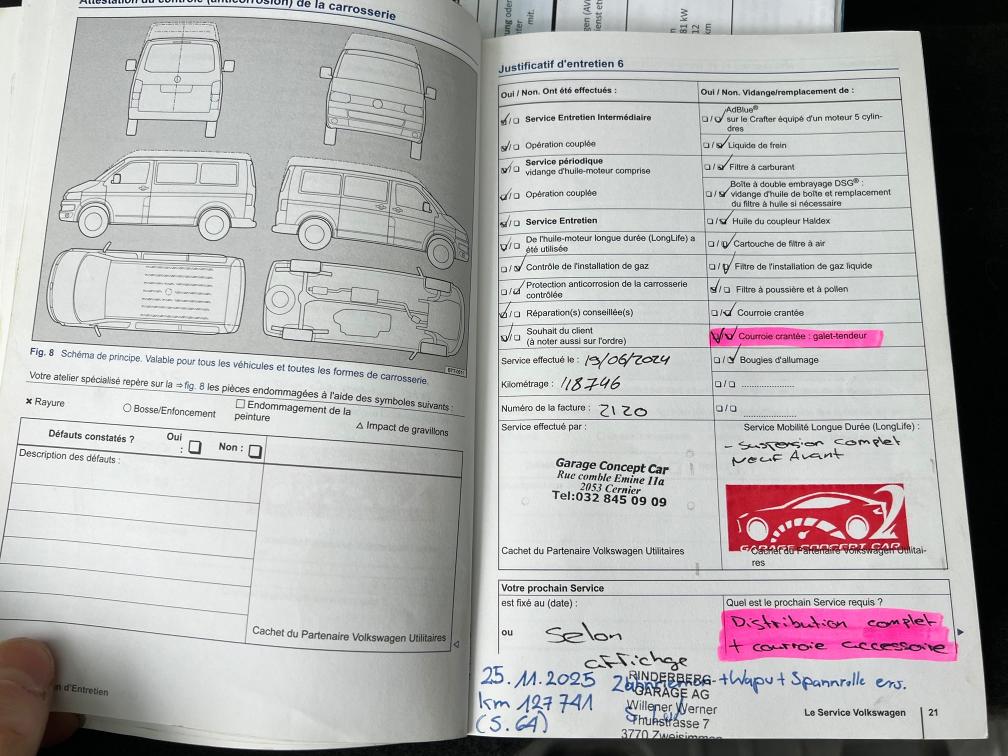 Attestation du contrôle (anticorrosion) de la carrosserie
Fig. 8 Schéma de principe. Valable pour tous les véhicules et toutes les formes de carrosserie.
Votre atelier spécialisé repère sur la ⇒ fig. 8 les pièces endommagées à l'aide des symboles suivants :
× Rayure
○ Bosse/Enfoncement
□ Endommagement de la
peinture
△ Impact de gravillons
Défauts constatés ?
Oui
: □
Non : □
Description des défauts :
Cachet du Partenaire Volkswagen Utilitaires
n d'Entretien
mit.
81 kW
12
km
Justificatif d'entretien 6
Oui / Non. Ont été effectués :
Service Entretien Intermédiaire
Opération couplée
Service périodique
vidange d'huile-moteur comprise
Opération couplée
Service Entretien
De l'huile-moteur longue durée (LongLife) a
été utilisée
Contrôle de l'installation de gaz
Protection anticorrosion de la carrosserie
contrôlée
Réparation(s) conseillée(s)
Souhait du client
(à noter aussi sur l'ordre)
Service effectué le : 19/06/2024
Kilométrage : 118746
Numéro de la facture : 2120
Service effectué par :
Garage Concept Car
Rue comble Emine 11a
2053 Cernier
Tel:032 845 09 09
Cachet du Partenaire Volkswagen Utilitaires
Oui / Non. Vidange/remplacement de :
AdBlue®
sur le Crafter équipé d'un moteur 5 cylin-
dres
Liquide de frein
Filtre à carburant
Boîte à double embrayage DSG® :
vidange d'huile de boîte et remplacement
du filtre à huile si nécessaire
Huile du coupleur Haldex
Cartouche de filtre à air
Filtre de l'installation de gaz liquide
Filtre à poussière et à pollen
Courroie crantée
Courroie crantée : galet-tendeur
Bougies d'allumage
Service Mobilité Longue Durée (LongLife) :
- suspension complet
Neuf Avant
GARAGE CONCEPT CAR
Cachet du Partenaire Volkswagen Utilitai-
res
Votre prochain Service
est fixé au (date) :
ou
Selon
affichage
Quel est le prochain Service requis ?
Distribution complet
+ courroie accessoire
25.11.2025 Zahnriemen + Wapu + Spannrolle ers.
km 127741
(S. 64)
RINDERBERG-
GARAGE AG
Willener Werner
Thunstrasse 7
3770 Zweisimmen
Le Service Volkswagen
21